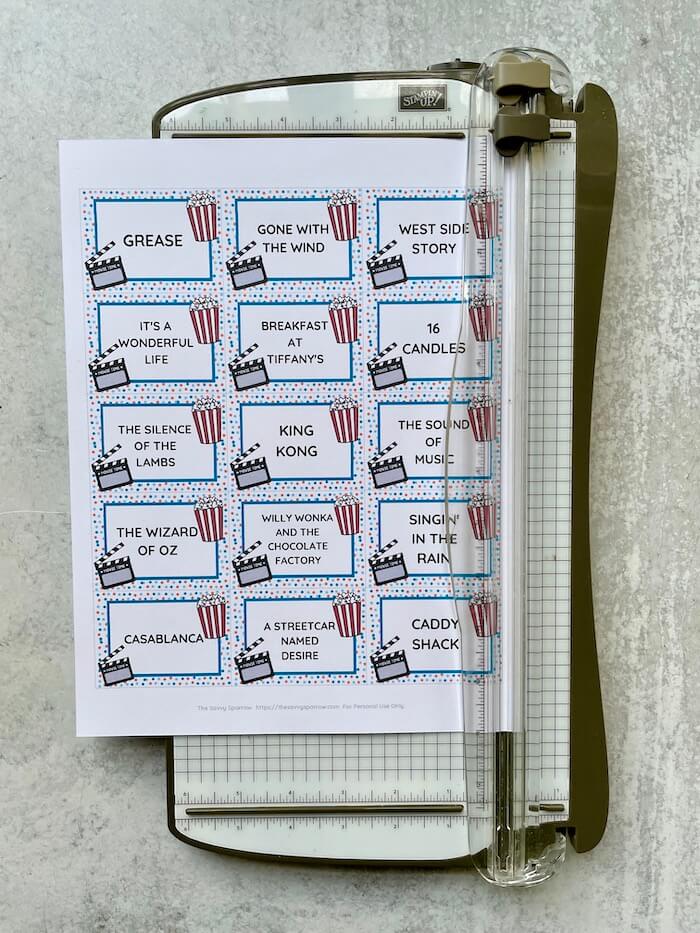 STAMPIN' UP!
GREASE
GONE WITH
THE WIND
WEST SIDE
STORY
IT'S A
WONDERFUL
LIFE
BREAKFAST
AT
TIFFANY'S
16
CANDLES
THE SILENCE
OF THE
LAMBS
KING
KONG
THE SOUND
OF
MUSIC
THE WIZARD
OF OZ
WILLY WONKA
AND THE
CHOCOLATE
FACTORY
SINGIN'
IN THE
RAIN
CASABLANCA
A STREETCAR
NAMED
DESIRE
CADDY
SHACK
The Savvy Sparrow https://thesavvysparrow.com For Personal Use Only.